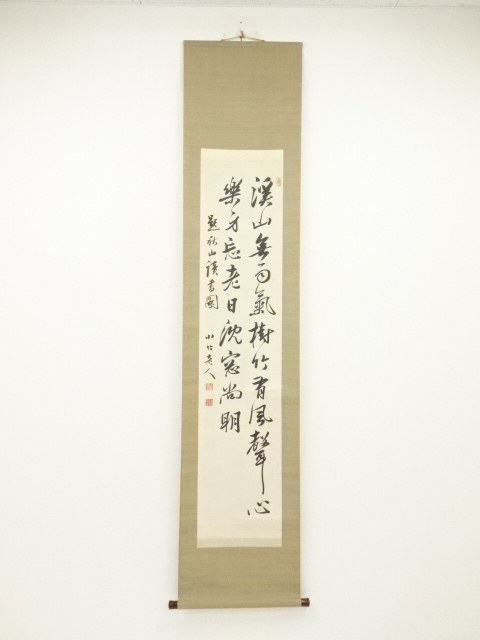 溪山無雨氣樹竹有風聲心
樂身忘老日沈窓尚明
題秋山讀書圖
小竹老人